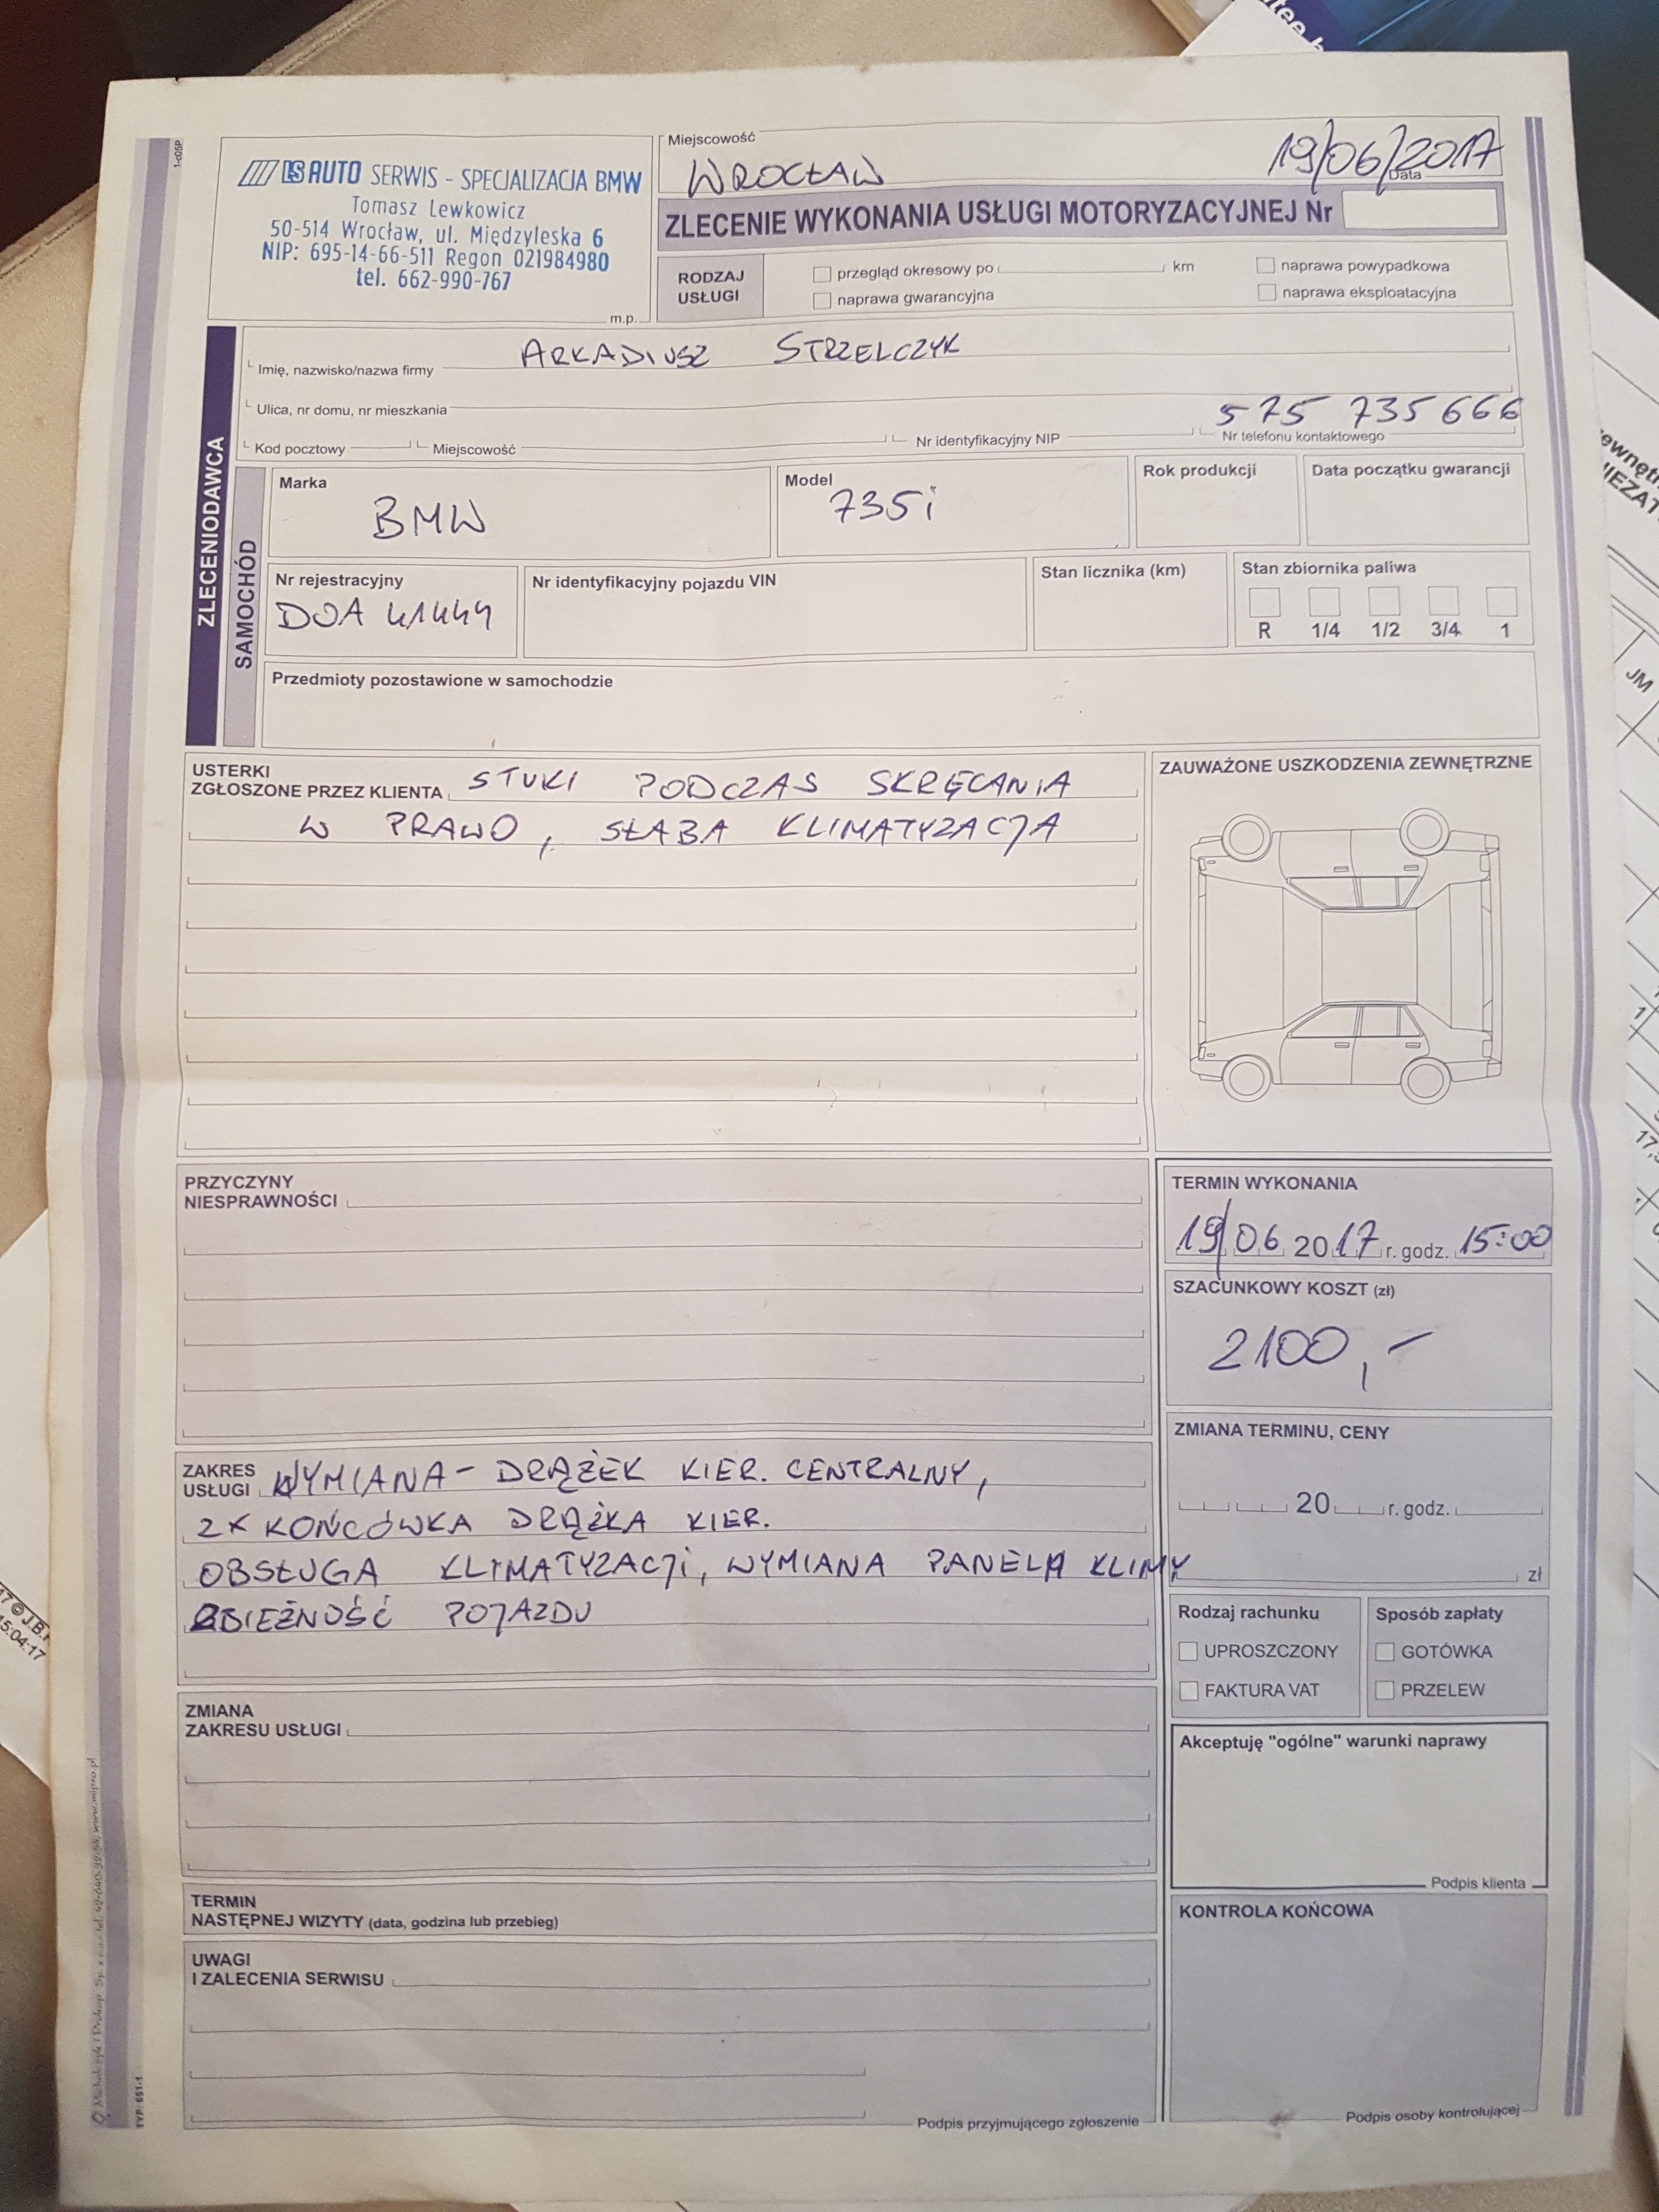 1-c05P
LS AUTO SERWIS - SPECJALIZACJA BMW
Tomasz Lewkowicz
50-514 Wrocław, ul. Międzyleska 6
NIP: 695-14-66-511 Regon 021984980
tel. 662-990-767
m.p.
Miejscowość
WROCŁAW
19/06/2017
Data
ZLECENIE WYKONANIA USŁUGI MOTORYZACYJNEJ Nr
RODZAJ USŁUGI
przegląd okresowy po km
naprawa gwarancyjna
naprawa powypadkowa
naprawa eksploatacyjna
ZLECENIODAWCA
ARKADIUSZ STRZELCZYK
Imię, nazwisko/nazwa firmy
Ulica, nr domu, nr mieszkania
575 735 666
Kod pocztowy Miejscowość Nr identyfikacyjny NIP Nr telefonu kontaktowego
SAMOCHÓD
Marka
BMW
Model
735i
Rok produkcji
Data początku gwarancji
Nr rejestracyjny
DOA 41449
Nr identyfikacyjny pojazdu VIN
Stan licznika (km)
Stan zbiornika paliwa
R 1/4 1/2 3/4 1
Przedmioty pozostawione w samochodzie
USTERKI
ZGŁOSZONE PRZEZ KLIENTA STUKI PODCZAS SKRĘCANIA
W PRAWO, SŁABA KLIMATYZACJA
ZAUWAŻONE USZKODZENIA ZEWNĘTRZNE
PRZYCZYNY
NIESPRAWNOŚCI
TERMIN WYKONANIA
19/06 2017 r. godz. 15:00
SZACUNKOWY KOSZT (zł)
2100,-
ZMIANA TERMINU, CENY
20 r. godz.
zł
ZAKRES
USŁUGI WYMIANA - DRĄŻEK KIER. CENTRALNY,
2X KOŃCÓWKA DRĄŻKA KIER.
OBSŁUGA KLIMATYZACJI, WYMIANA PANELA KLIMY
ZBIEŻNOŚĆ POJAZDU
Rodzaj rachunku
UPROSZCZONY
FAKTURA VAT
Sposób zapłaty
GOTÓWKA
PRZELEW
ZMIANA
ZAKRESU USŁUGI
Akceptuję "ogólne" warunki naprawy
Podpis klienta
TERMIN
NASTĘPNEJ WIZYTY (data, godzina lub przebieg)
KONTROLA KOŃCOWA
UWAGI
I ZALECENIA SERWISU
Podpis przyjmującego zgłoszenie
Podpis osoby kontrolującej
TYP: 651-1
JM
15:04:17